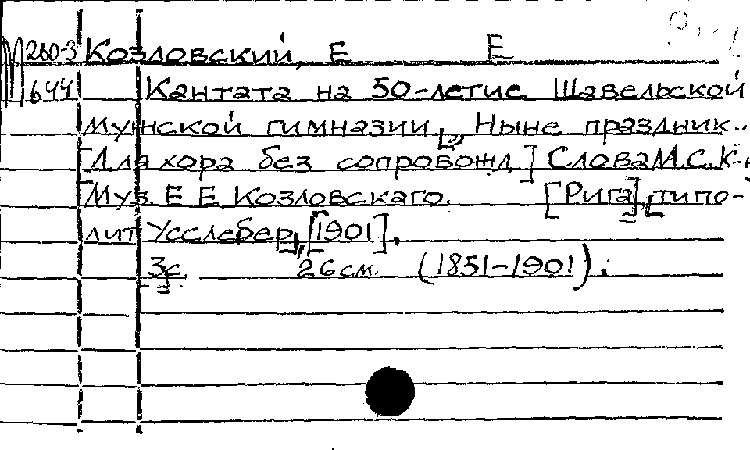 М 280-3 Козловский, Е Е
644 Кантата на 50-летие Шавельской
Мужской гимназии, Ныне праздник..
[Для хора без сопровожд.] Слова М.С.К-
Муз. Е Е Козловскаго. [Рига], типо-
лит Усслебер, [1901],
3с. 26 см (1851-1901).